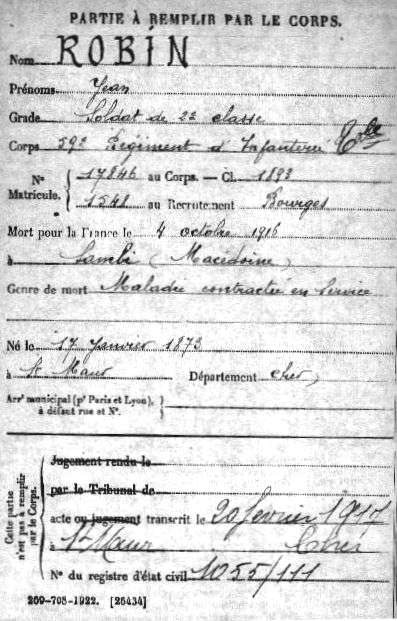 PARTIE À REMPLIR PAR LE CORPS.
Nom ROBIN
Prénoms Jean
Grade Soldat de 2e classe
Corps 59e Régiment d'Infanterie Cole
No Matricule. 17846 au Corps. — Cl. 1893
1541 au Recrutement Bourges
Mort pour la France le 4 octobre 1916
à Sambi (Macédoine)
Genre de mort Maladie contractée en Service
Né le 17 Janvier 1873
à St Maur Département Cher
Arrt municipal (pr Paris et Lyon), à défaut rue et No.
Cette partie n'est pas à remplir par le Corps.
Jugement rendu le
par le Tribunal de
acte ou jugement transcrit le 20 février 1917
à St Maur Cher
No du registre d'état civil 1055/111
269-708-1922. [26434]